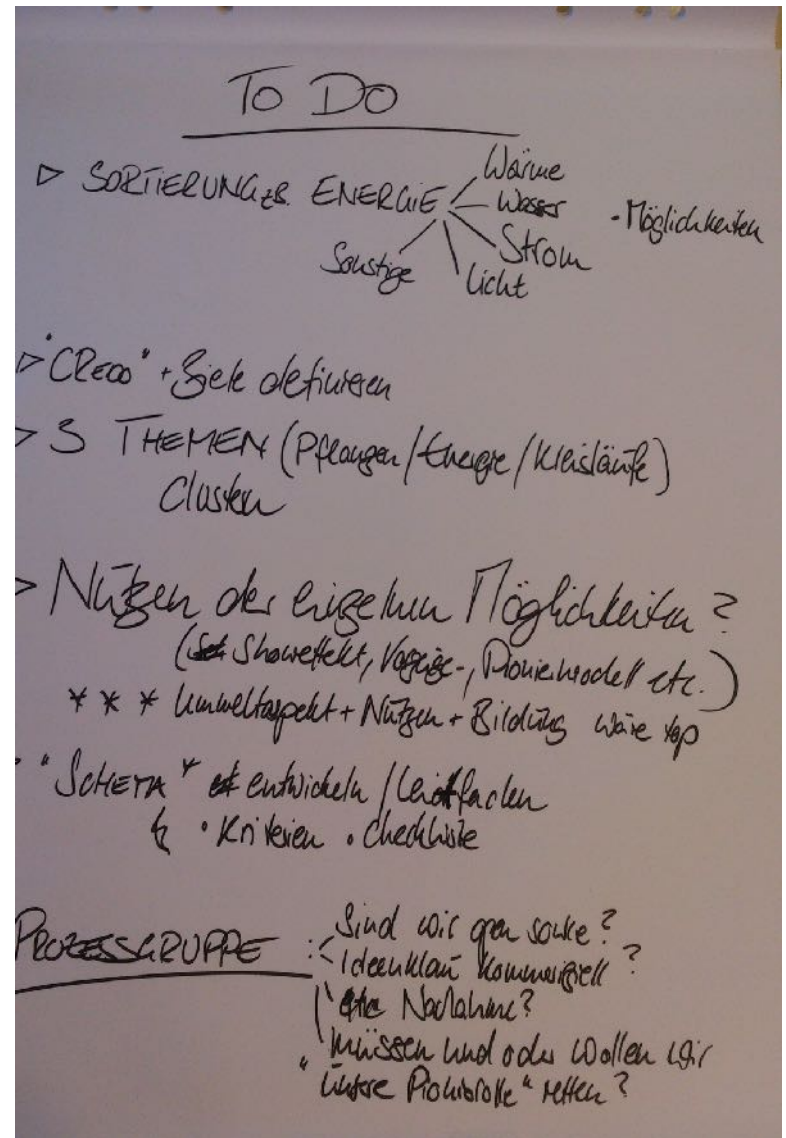 TO DO
▷ SORTIERUNG z.B. ENERGIE
Wärme
Wasser
Strom
Licht
Sonstige
- Möglichkeiten
▷ "CREDO" + Ziele definieren
> 3 THEMEN (Pflanzen/Energie/Kreisläufe)
Clustern
> Nutzen der einzelnen Möglichkeiten?
(Showeffekt, Vorzeige-, Pioniermodell etc.)
* * * Umweltaspekt + Nutzen + Bildung wäre top
"SCHEMA" entwickeln / Leitfaden
• Kriterien • Checkliste
PROZESSGRUPPE :
Sind wir open source?
Ideenklau kommerziell?
Nachahme?
müssen und oder wollen wir
"unsere Pionierrolle" retten?